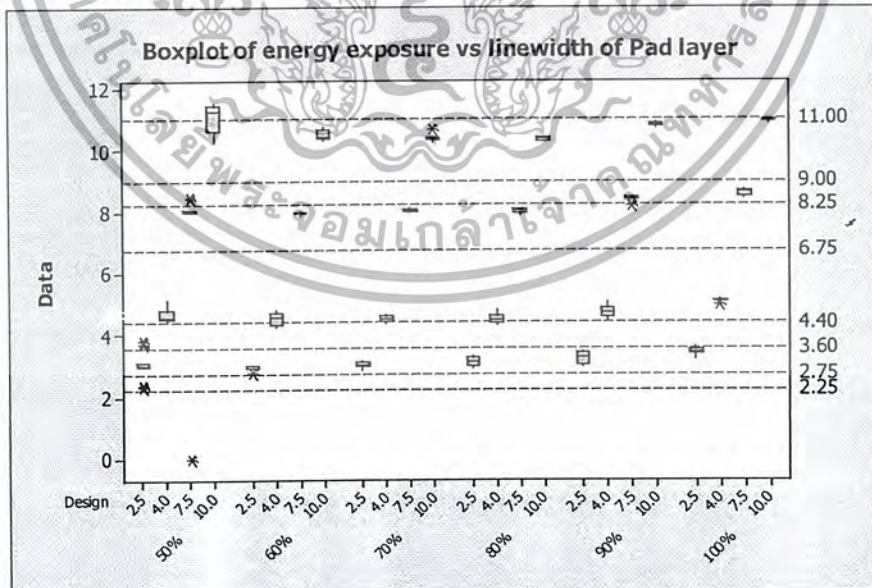 Boxplot of energy exposure vs linewidth of Pad layer
12
10
8
6
4
2
0
Data
11.00
9.00
8.25
6.75
4.40
3.60
2.75
2.25
Design
2.5 4.0 7.5 10.0 2.5 4.0 7.5 10.0 2.5 4.0 7.5 10.0 2.5 4.0 7.5 10.0 2.5 4.0 7.5 10.0 2.5 4.0 7.5 10.0
50% 60% 70% 80% 90% 100%
คโนโลยีพระจอมเกล้าเจ้าคุณทหารล